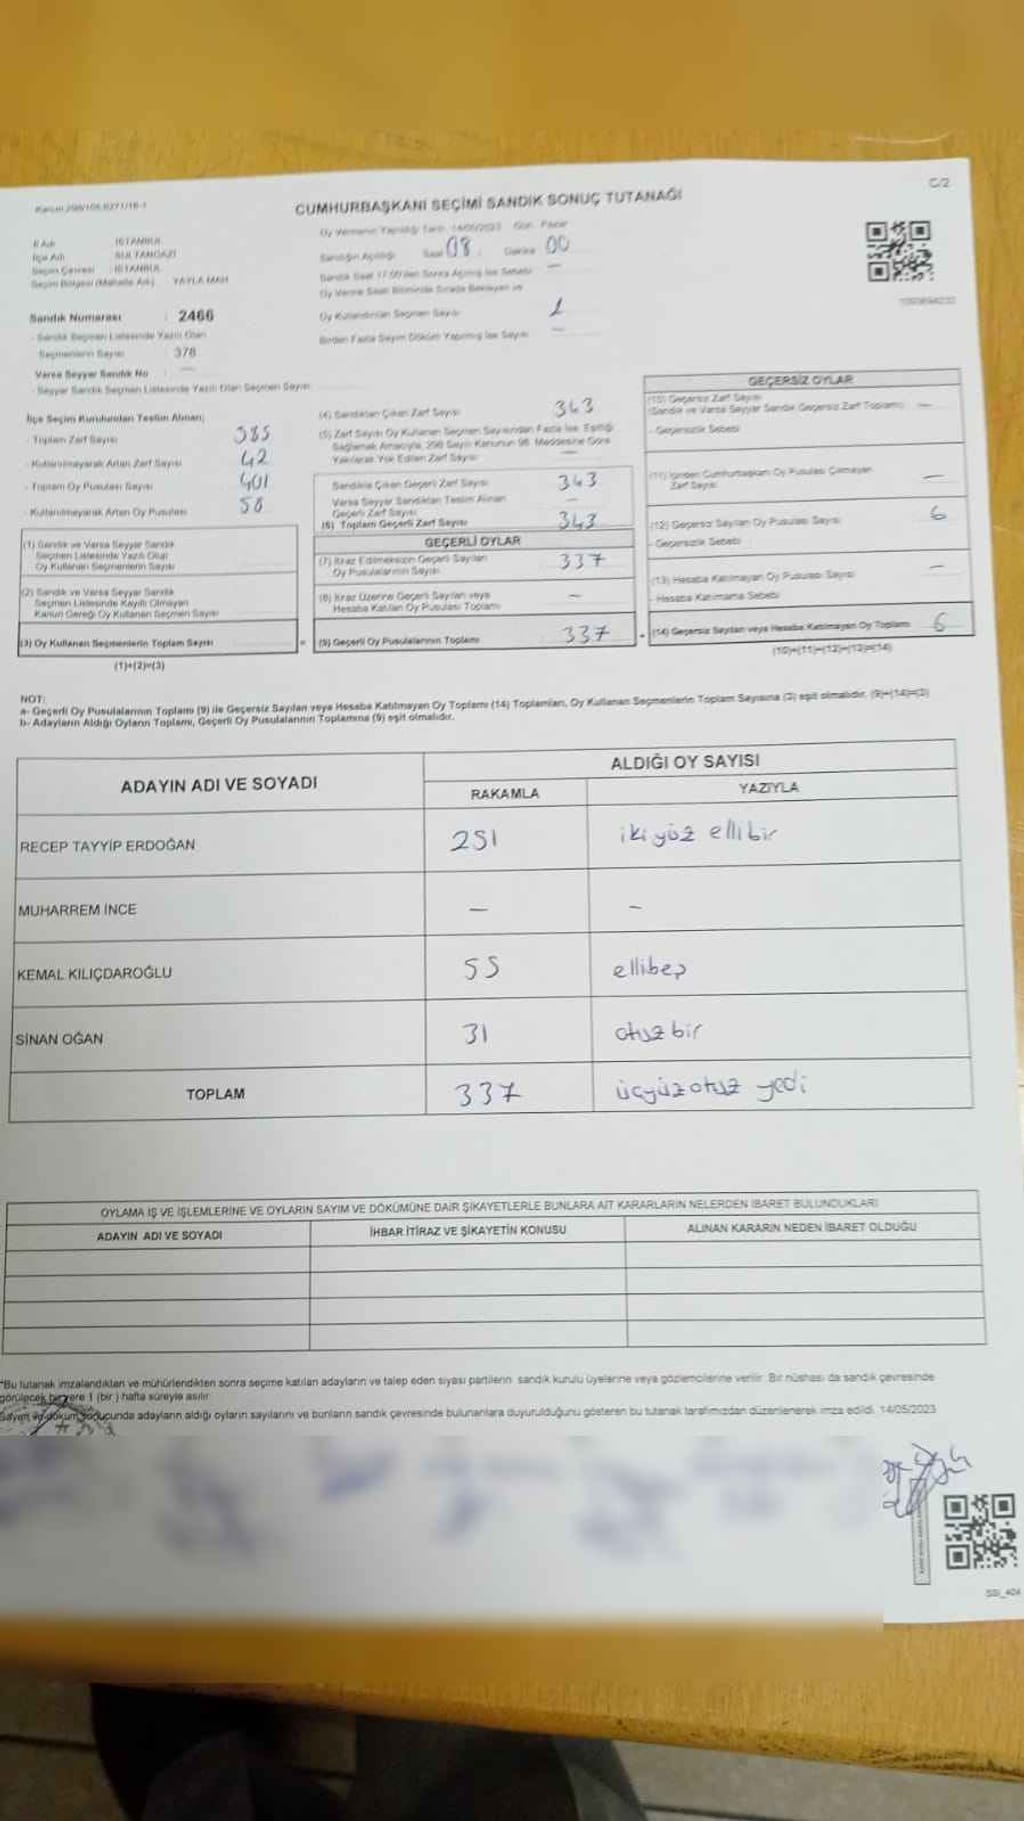 C/2
CUMHURBAŞKANI SEÇİMİ SANDIK SONUÇ TUTANAĞI
İl Adı : İSTANBUL
İlçe Adı : SULTANGAZİ
Seçim Çevresi : İSTANBUL
Seçim Bölgesi (Mahalle Adı) YAYLA MAH
Oy Vermenin Yapıldığı Tarih 14/05/2023 Gün Pazar
Sandığın Açılışı Saat 08 Dakika 00
Oy Kullandırılan Seçmen Sayısı 1
Birden Fazla Sayım Döküm Yapılmış İse Sayısı —
Sandık Numarası : 2466
- Sandık Seçmen Listesinde Yazılı Olan
Seçmenlerin Sayısı 378
Varsa Seyyar Sandık No —
- Seyyar Sandık Seçmen Listesinde Yazılı Olan Seçmen Sayısı
İlçe Seçim Kurulundan Teslim Alınan;
- Toplam Zarf Sayısı 385
- Kullanılmayarak Artan Zarf Sayısı 42
- Toplam Oy Pusulası Sayısı 401
- Kullanılmayarak Artan Oy Pusulası 58
(1) Sandık ve Varsa Seyyar Sandık
Seçmen Listesinde Yazılı Olup
Oy Kullanan Seçmenlerin Sayısı
(2) Sandık ve Varsa Seyyar Sandık
Seçmen Listesinde Kayıtlı Olmayan
Kanun Gereği Oy Kullanan Seçmen Sayısı
(3) Oy Kullanan Seçmenlerin Toplam Sayısı
(1)+(2)=(3)
(4) Sandıktan Çıkan Zarf Sayısı 343
(5) Zarf Sayısı Oy Kullanan Seçmen Sayısından Fazla İse, Eşitliği
Sağlamak Amacıyla, 298 Sayılı Kanunun 98. Maddesine Göre
Yakılarak Yok Edilen Zarf Sayısı —
Sandıkta Çıkan Geçerli Zarf Sayısı 343
Varsa Seyyar Sandıktan Teslim Alınan
Geçerli Zarf Sayısı —
(6) Toplam Geçerli Zarf Sayısı 343
GEÇERLİ OYLAR
(7) İtiraz Edilmeksizin Geçerli Sayılan
Oy Pusulalarının Sayısı 337
(8) İtiraz Üzerine Geçerli Sayılan veya
Hesaba Katılan Oy Pusulası Toplamı —
= (9) Geçerli Oy Pusulalarının Toplamı 337
GEÇERSİZ OYLAR
(10) Geçersiz Zarf Sayısı
(Sandık ve Varsa Seyyar Sandık Geçersiz Zarf Toplamı) —
- Geçersizlik Sebebi
(11) İçinden Cumhurbaşkanı Oy Pusulası Çıkmayan
Zarf Sayısı —
(12) Geçersiz Sayılan Oy Pusulası Sayısı 6
- Geçersizlik Sebebi
(13) Hesaba Katılmayan Oy Pusulası Sayısı —
- Hesaba Katılmama Sebebi
+ (14) Geçersiz Sayılan veya Hesaba Katılmayan Oy Toplamı 6
(10)+(11)+(12)+(13)=(14)
NOT:
a- Geçerli Oy Pusulalarının Toplamı (9) ile Geçersiz Sayılan veya Hesaba Katılmayan Oy Toplamı (14) Toplamları, Oy Kullanan Seçmenlerin Toplam Sayısına (3) eşit olmalıdır. (9)+(14)=(3)
b- Adayların Aldığı Oyların Toplamı, Geçerli Oy Pusulalarının Toplamına (9) eşit olmalıdır.
ADAYIN ADI VE SOYADI
ALDIĞI OY SAYISI
RAKAMLA YAZIYLA
RECEP TAYYİP ERDOĞAN 251 iki yüz ellibir
MUHARREM İNCE — —
KEMAL KILIÇDAROĞLU 55 ellibeş
SİNAN OĞAN 31 otuz bir
TOPLAM 337 üçyüz otuz yedi
OYLAMA İŞ VE İŞLEMLERİNE VE OYLARIN SAYIM VE DÖKÜMÜNE DAİR ŞİKAYETLERLE BUNLARA AİT KARARLARIN NELERDEN İBARET BULUNDUKLARI
ADAYIN ADI VE SOYADI İHBAR İTİRAZ VE ŞİKAYETİN KONUSU ALINAN KARARIN NEDEN İBARET OLDUĞU
*Bu tutanak imzalandıktan ve mühürlendikten sonra seçime katılan adayların ve talep eden siyasi partilerin sandık kurulu üyelerine veya gözlemcilerine verilir. Bir nüshası da sandık çevresinde
görülecek bir yere 1 (bir) hafta süreyle asılır.
Sayım ve döküm sonucunda adayların aldığı oyların sayılarını ve bunların sandık çevresinde bulunanlara duyurulduğunu gösteren bu tutanak tarafımızdan düzenlenerek imza edildi. 14/05/2023